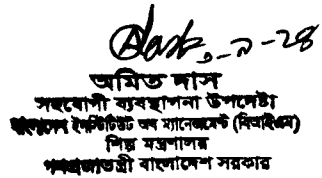 ৩-৯-২৪
অমিত দাস
সহযোগী ব্যবস্থাপনা উপদেষ্টা
বাংলাদেশ ইনস্টিটিউট অব ম্যানেজমেন্ট (বিআইএম)
শিল্প মন্ত্রণালয়
গণপ্রজাতন্ত্রী বাংলাদেশ সরকার